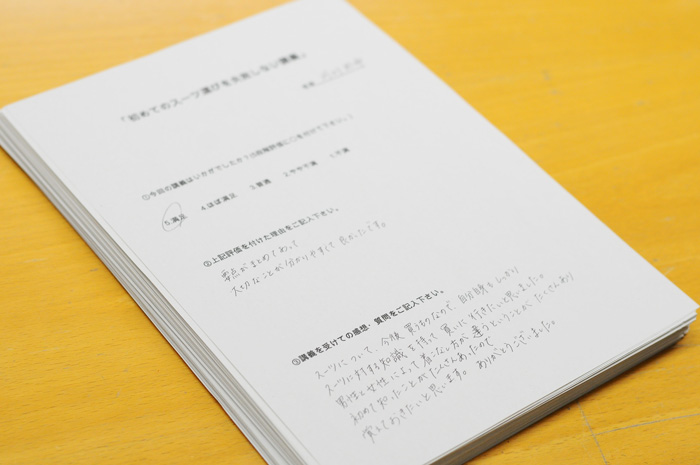 「初めてのスーツ選びを失敗しない講義」
①今回の講義はいかがでしたか？(5段階評価に○を付けて下さい。)
5.満足 4.ほぼ満足 3.普通 2.やや不満 1.不満
②上記評価を付けた理由をご記入下さい。
要点がまとめてあって
大切なことが分かりやすくて良かったです。
③講義を受けての感想・質問をご記入下さい。
スーツについて、今後買うものなので、自分自身もしっかり
スーツに対する知識を持って買いに行きたいと思いました。
男性と女性によって着こなし方が違うということがたくさんあり
初めて知ったことがたくさんあったので
覚えておきたいと思います。ありがとうございました。